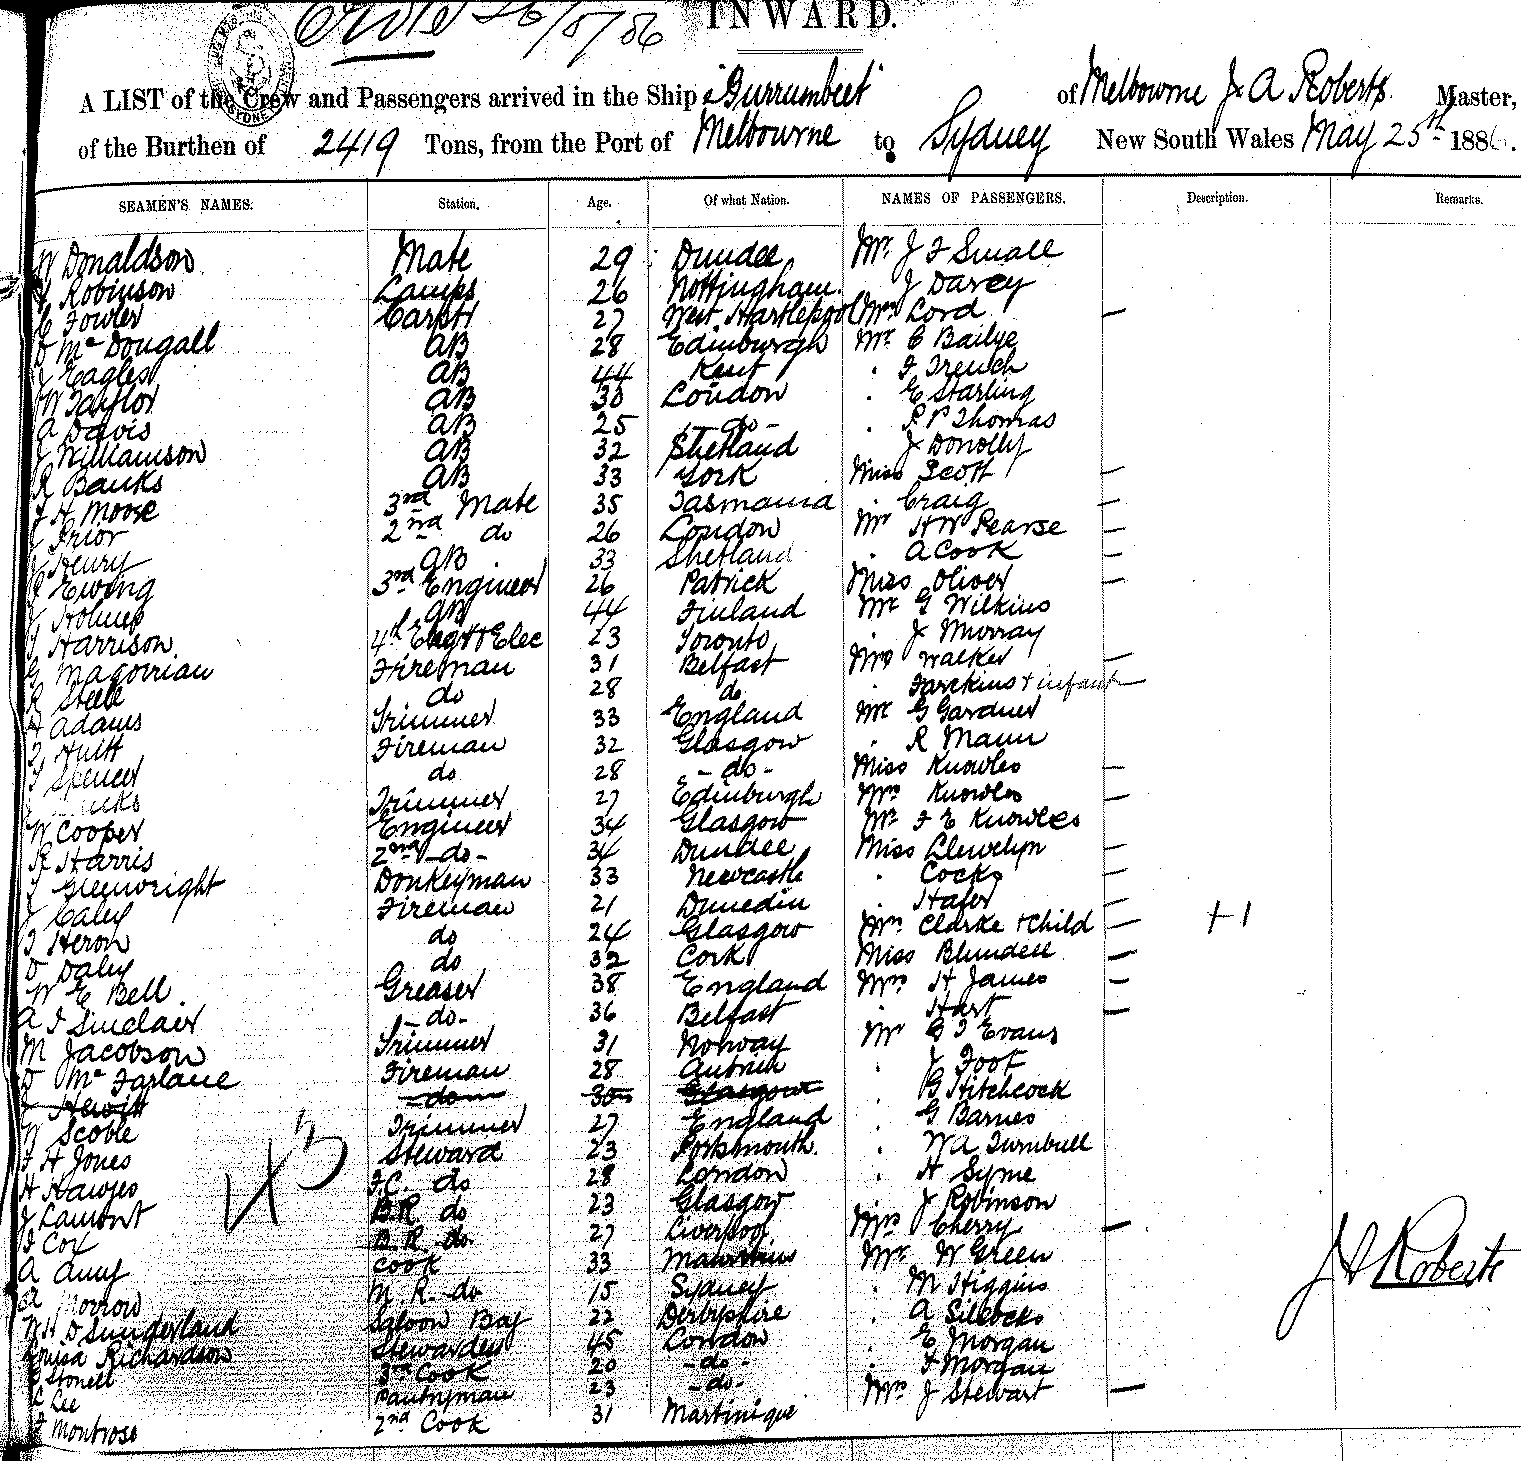 INWARD.
A LIST of the Crew and Passengers arrived in the Ship "Burrumbeet" of Melbourne J A Roberts Master,
of the Burthen of 2419 Tons, from the Port of Melbourne to Sydney New South Wales May 25th 1886.
SEAMEN'S NAMES. Station. Age. Of what Nation. NAMES OF PASSENGERS. Description. Remarks.
W Donaldson Mate 29 Dundee Mr J F Small
Robinson Lamps 26 Nottingham J Darcy
C Fowler Carptr 27 West Hartlepool Mrs Lord —
D McDougall AB 28 Edinburgh Mr C Bailye
J Eagles AB 44 Kent . F Trench
W Taylor AB 30 London . E Starling
A Davis AB 25 - do - . Thomas
J Williamson AB 32 Shetland J Donolly
R Banks AB 33 York Miss Scott —
J H Moore 3rd Mate 35 Tasmania . Craig —
Prior 2nd do 26 London Mr H W Pearse —
Henry AB 33 Shetland . A Cook —
Ewing 3rd Engineer 26 Patrick Miss Oliver —
Holmes AB 44 Finland Mr G Wilkins
Harrison 4th Engr & Elec 23 Toronto . J Murray
G Magorrian Fireman 31 Belfast Mrs Walker —
R Steele do 28 do . + infant —
Adams Trimmer 33 England Mr G Gardner
Fireman 32 Glasgow . R Mann
Spencer do 28 - do - Miss Knowles —
Trimmer 27 Edinburgh Mrs Knowles —
W Cooper Engineer 34 Glasgow Mr F E Knowles
R Harris 2nd - do - 34 Dundee Miss Llewelyn —
J Gleenwright Donkeyman 33 Newcastle . Cocks —
J Caley Fireman 21 Dunedin . Hafer —
Heron do 24 Glasgow Mrs Clarke + Child — +1
D Daley do 32 Cork Miss Blundell —
W E Bell. Greaser 38 England Mrs H James —
A F Sinclair - do - 36 Belfast . Hart —
M Jacobson Trimmer 31 Norway Mr G F Evans
D McFarlane Fireman 28 Antrim . J Foot
J Hewitt - do - 30 Glasgow . G Hitchcock
W Scoble Trimmer 27 England . G Barnes
F H Jones Steward 23 Portsmouth. . W A Turnbull
H Hawjes F.C. do 28 London . H Syme
J Lamont B.R do 23 Glasgow J Robinson
Cox B.R. do 27 Liverpool Mrs Cherry —
A Cook 33 Mauritius Mr W Green
Morrow M. R. do 15 Sydney . M Higgins
W H D Sunderland Saloon Boy 22 Derbyshire . A Silcocks
Louisa Richardson Stewardess 45 London . E Morgan
Stonell 3rd Cook 20 - do - . F Morgan
C Lee Pantryman 23 - do - Mrs J Stewart —
F Montrose 2nd Cook 31 Martinique
J A Roberts